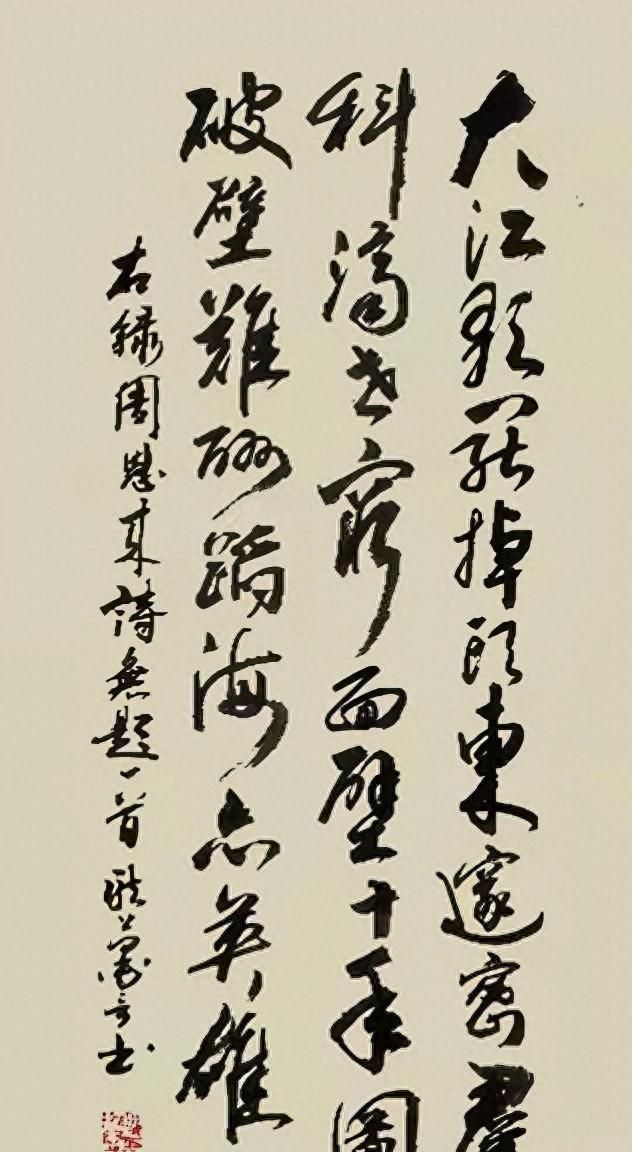 大江歌罷掉頭東邃密羣
科濟世窮面壁十年圖
破壁難酬蹈海亦英雄
右録周恩來詩無題一首 書